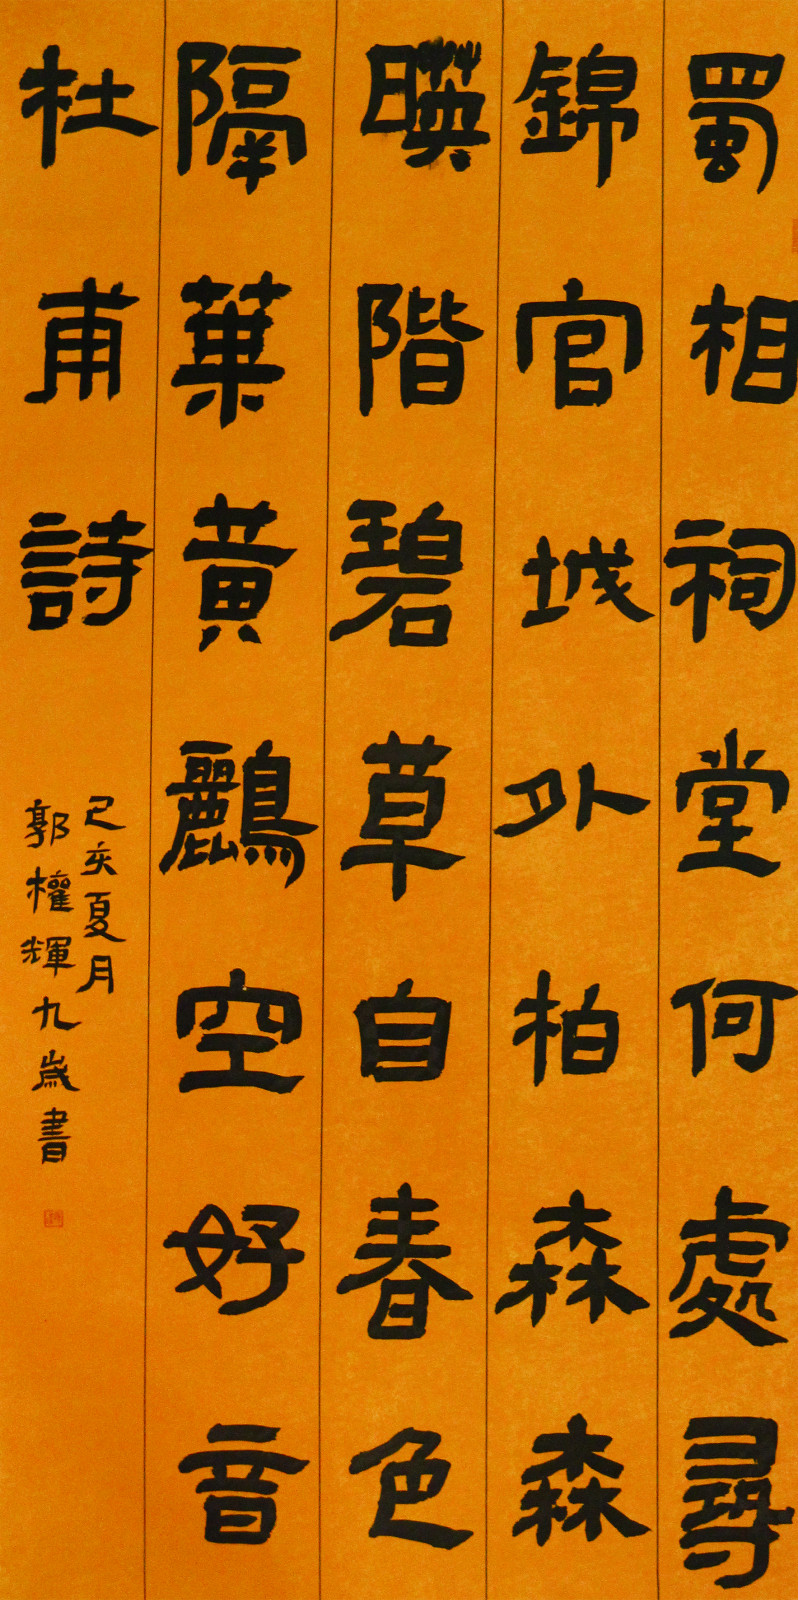 蜀相祠堂何處尋
錦官城外柏森森
暎階碧草自春色
隔葉黃鸝空好音
杜甫詩
己亥夏月
郭權輝九歲書